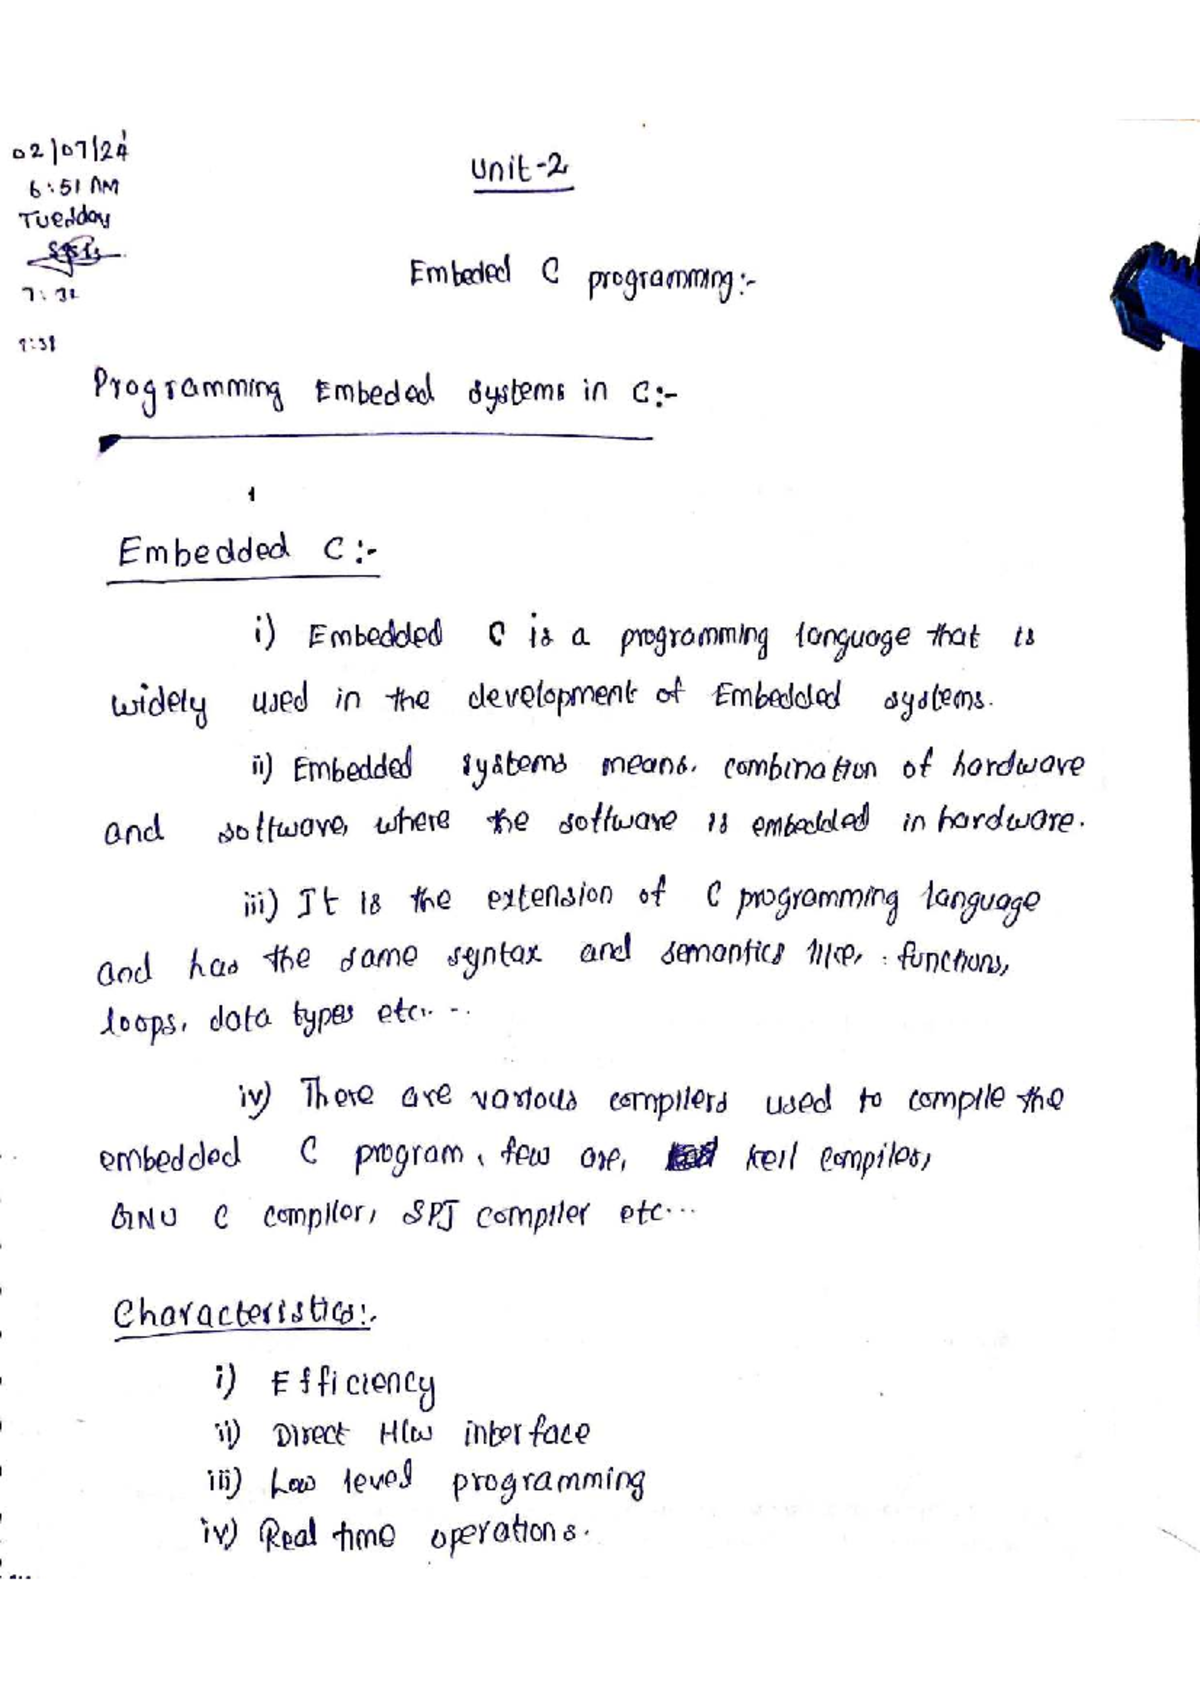 02/07/24
6:51 AM
Tuesday
7:32
7:38
Unit-2
Embeded C programming:-
Programming Embeded systems in C:-
1
Embedded C:-
i) Embedded C is a programming language that is
widely used in the development of Embedded systems.
ii) Embedded systems means. combination of hardware
and software, where the software is embedded in hardware.
iii) It is the extension of C programming language
and has the same syntax and semantics like, : functions,
loops, data types etc.. -..
iv) There are various compilers used to compile the
embedded C program, few are, keil compiler,
GNU C compiler, SPJ compiler etc...
Characteristics:.
i) Efficiency
ii) Direct H/w interface
iii) Low level programming
iv) Real time operations.